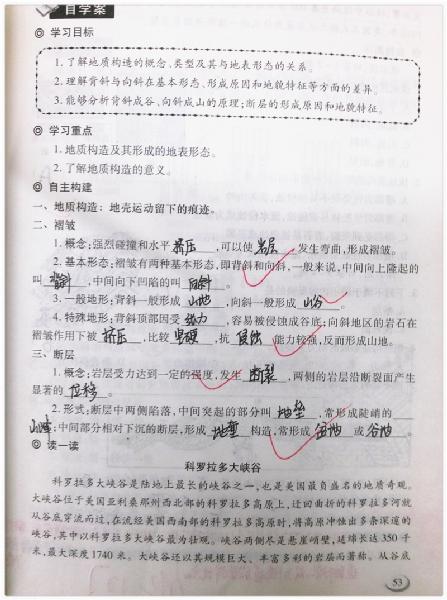 自学案
◎ 学习目标
1. 了解地质构造的概念、类型及其与地表形态的关系。
2. 理解背斜与向斜在基本形态、形成原因和地貌特征等方面的差异。
3. 能够分析背斜成谷、向斜成山的原理;断层的形成原因和地貌特征。
◎ 学习重点
1. 地质构造及其形成的地表形态。
2. 了解地质构造的意义。
◎ 自主构建
一、地质构造:地壳运动留下的痕迹。
二、褶皱
1. 概念:强烈碰撞和水平 挤压 ,可以使 岩层 发生弯曲,形成褶皱。
2. 基本形态:褶皱有两种基本形态,即背斜和向斜,一般来说,中间向上隆起的
叫 背斜 ,中间向下凹陷的叫 向斜 。
3. 一般地形:背斜一般形成 山地 ,向斜一般形成 山谷 。
4. 特殊地形:背斜顶部因受 张力 ,容易被侵蚀成谷底;向斜地区的岩石在
褶皱作用下被 挤压 ,比较 坚硬 ,抗 侵蚀 能力较强,反而形成山地。
三、断层
1. 概念:岩层受力达到一定的强度,发生 断裂 ,两侧的岩层沿断裂面产生
显著的 位移 。
2. 形式:断层中两侧陷落,中间突起的部分叫 地垒 ,常形成陡峭的
山峰;中间部分相对下沉的断层,形成 地堑 构造,常形成 盆地 或 谷地 。
◎ 读一读
科罗拉多大峡谷
科罗拉多大峡谷是陆地上最长的峡谷之一,也是美国最负盛名的地质奇观。
大峡谷位于美国亚利桑那州西北部的科罗拉多高原上,迂回曲折的科罗拉多河就
从谷底穿流而过,在流经美国西南部的科罗拉多高原时,将高原冲蚀出多条深邃的
峡谷,其中以科罗拉多大峡谷最为壮观。峡谷两侧尽是悬崖峭壁,延绵长达 350 千
米,最大深度 1740 米。大峡谷还以其规模巨大、丰富多彩的岩层而著称。从谷底
53